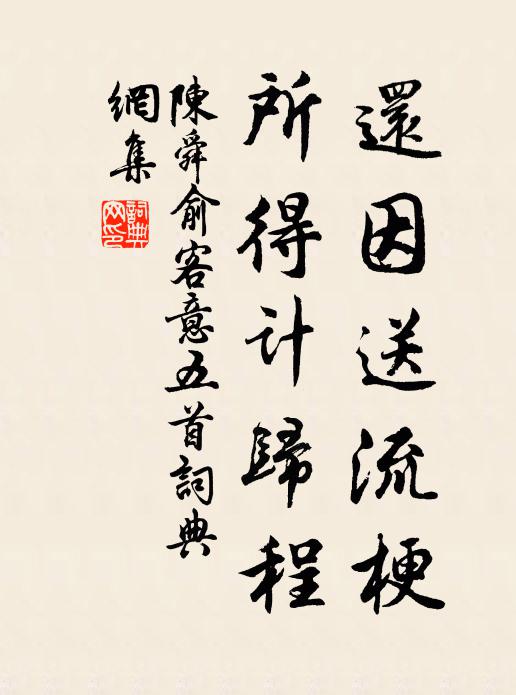 還因送流梗
所得計歸程
陳舜俞客意五首詞典
網集
詞典
网印